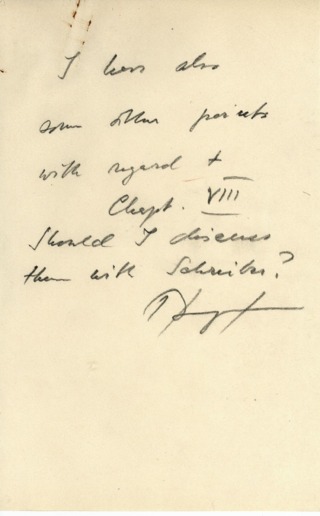 I have also
some other points
with regard to
Chapt. VIII
Should I discuss
them with Schreiber?